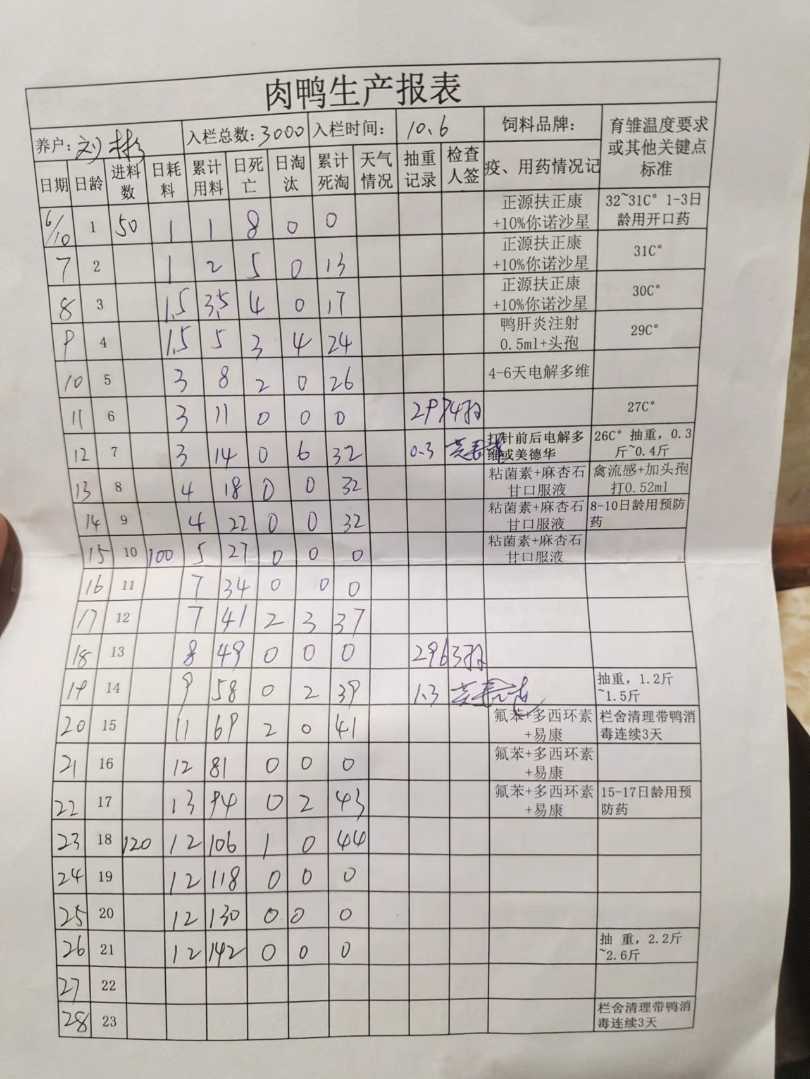 肉鸭生产报表
养户: 刘彬 入栏总数: 3000 入栏时间: 10.6 饲料品牌: 育雏温度要求或其他关键点标准
日期 日龄 进料数 日耗料 累计用料 日死亡 日淘汰 累计死淘 天气情况 抽重记录 检查人签 疫、用药情况记
6/10 1 50 1 1 8 0 0 正源扶正康+10%你诺沙星 32~31C° 1-3日龄用开口药
7 2 1 2 5 0 13 正源扶正康+10%你诺沙星 31C°
8 3 1.5 3.5 4 0 17 正源扶正康+10%你诺沙星 30C°
9 4 1.5 5 3 4 24 鸭肝炎注射0.5ml+头孢 29C°
10 5 3 8 2 0 26 4-6天电解多维
11 6 3 11 0 0 0 2974羽 27C°
12 7 3 14 0 6 32 0.3 打针前后电解多维或美德华 26C° 抽重，0.3斤~0.4斤
13 8 4 18 0 0 32 粘菌素+麻杏石甘口服液 禽流感+加头孢打0.52ml
14 9 4 22 0 0 32 粘菌素+麻杏石甘口服液 8-10日龄用预防药
15 10 100 5 27 0 0 0 粘菌素+麻杏石甘口服液
16 11 7 34 0 0 0
17 12 7 41 2 3 37
18 13 8 49 0 0 0 2963羽
19 14 9 58 0 2 39 1.3 抽重，1.2斤~1.5斤
20 15 11 69 2 0 41 氟苯+多西环素+易康 栏舍清理带鸭消毒连续3天
21 16 12 81 0 0 0 氟苯+多西环素+易康
22 17 13 94 0 2 43 氟苯+多西环素+易康 15-17日龄用预防药
23 18 120 12 106 1 0 44
24 19 12 118 0 0 0
25 20 12 130 0 0 0
26 21 12 142 0 0 0 抽 重，2.2斤~2.6斤
27 22
28 23 栏舍清理带鸭消毒连续3天